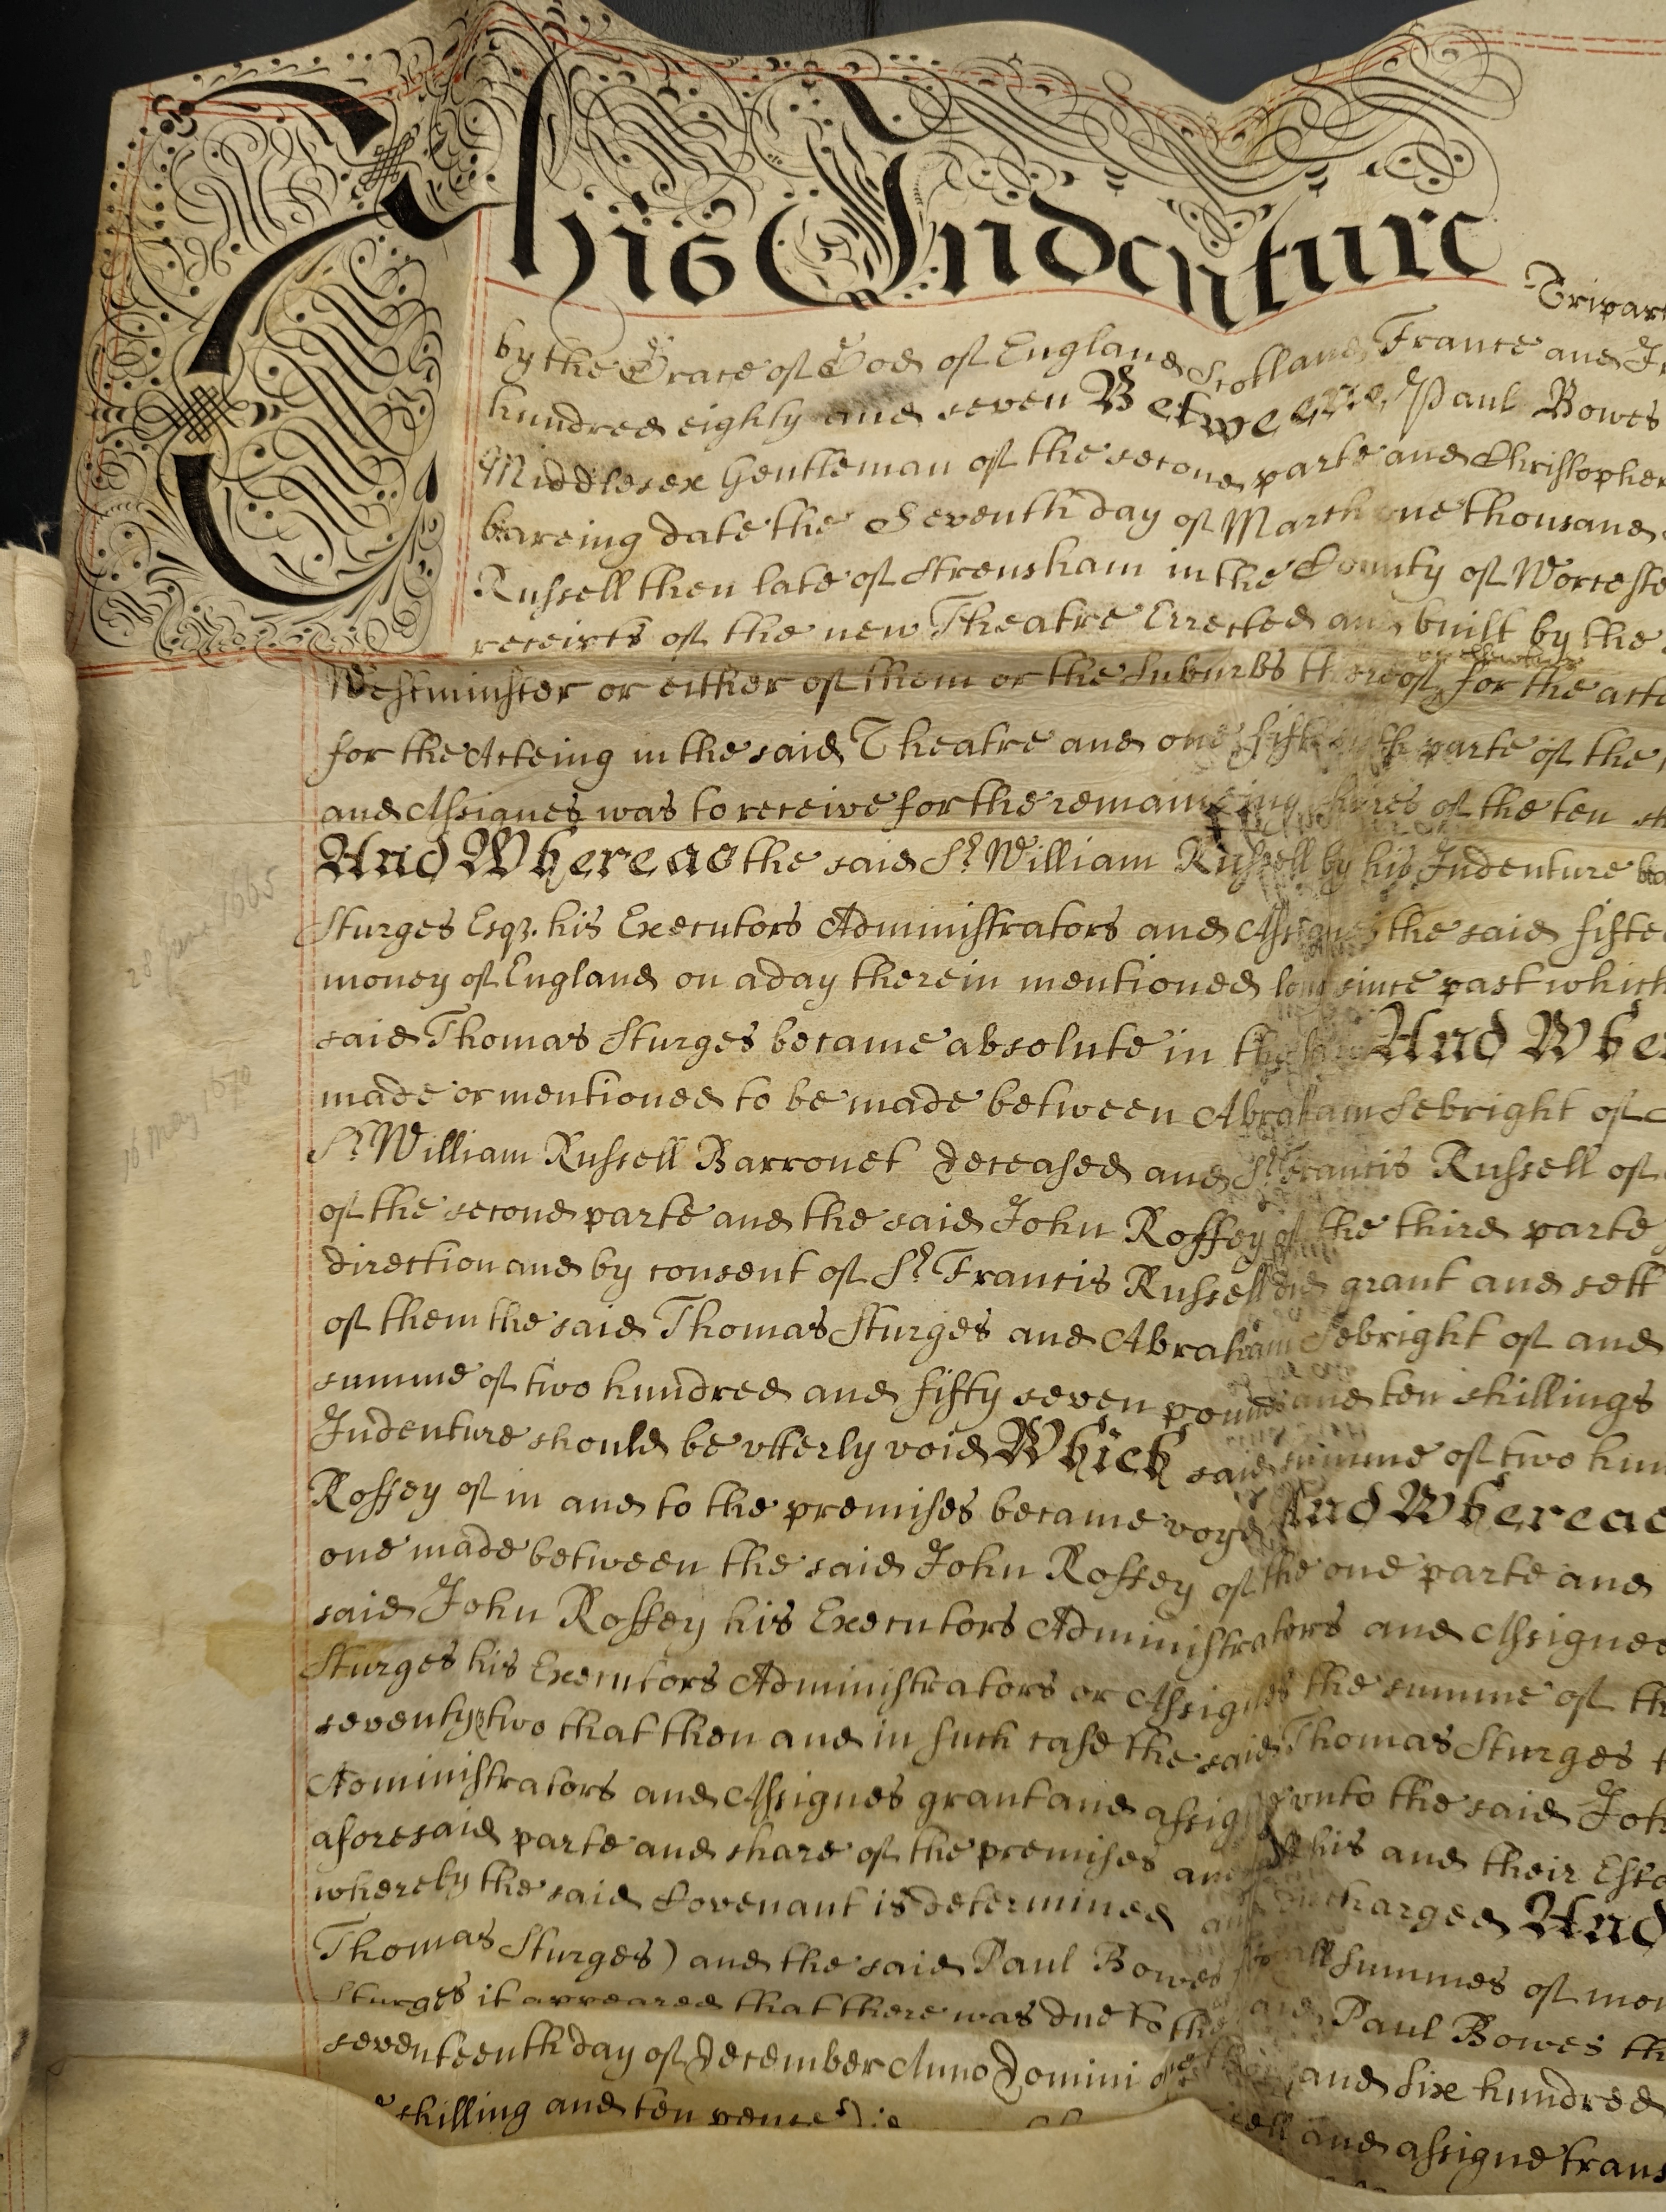 This Indenture Tripart
by the Grace of God of England Scotland France and Ir
hundred eighty and seven Betweene Paul Bowes
Middlesex Gentleman of the second parte and Christopher
beareing date the Seventh day of March one thousand
Russell then late of Strensham in the County of Worceste
receipts of the new Theatre Errected and built by the
or elswhere
Westminster or either of them or the Suburbs thereof for the acte
for the Acteing in the said Theatre and one fifteenth parte of the
and Assignes was to receive for the remaineing shares of the ten sh
And Whereas the said Sr. William Russell by his Indenture bea
28 June 1665
Sturges Esqr. his Executors Administrators and Assignes the said fifte
money of England on a day therein mentioned long since past which
said Thomas Sturges became absolute in the And Wher
16 May 1670
made or mentioned to be made between Abraham Sebright of
Sr. William Russell Barronet deceased and Sr. Francis Russell of
of the second parte and the said John Roffey of the third parte
direction and by consent of Sr. Francis Russell did grant and sett
of them the said Thomas Sturges and Abraham Sebright of and
summe of two hundred and fifty seven pounds and ten shillings
Indenture should be utterly void Which said summe of two hun
Roffey of in and to the premises became voyd And Whereas
one made between the said John Roffey of the one parte and
said John Roffey his Executors Administrators and Assignes
Sturges his Executors Administrators or Assignes the summe of th
seventy two that then and in such case the said Thomas Sturges
Administrators and Assignes grant and assigne unto the said Joh
aforesaid parte and share of the premises and his and their Esta
whereby the said Covenant is determined and discharged And
Thomas Sturges) and the said Paul Bowes for all summes of mon
Sturges it appeared that there was due to the said Paul Bowes th
seventeenth day of December Anno Domini and six hundred
shilling and ten pence sell and assigne trans